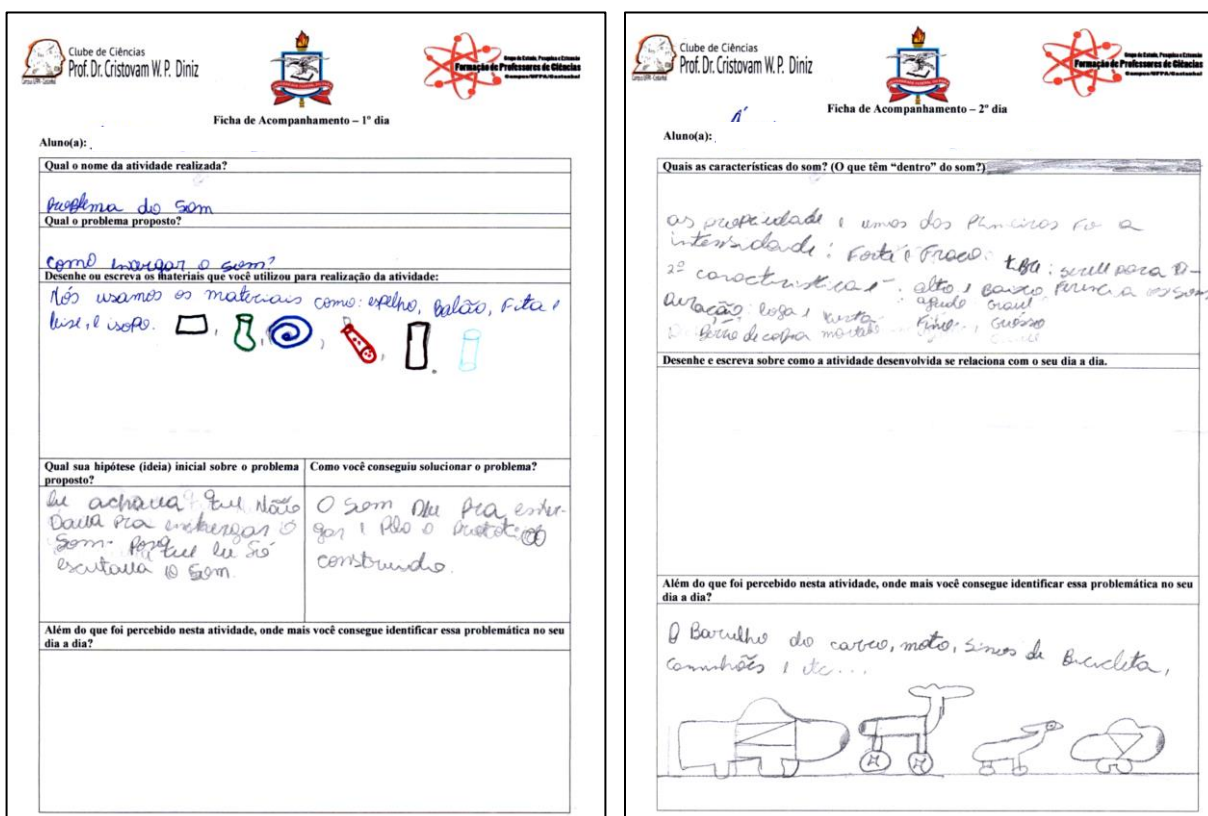 Clube de Ciências
Prof. Dr. Cristovam W. P. Diniz
Grupo de Estudo, Pesquisa e Extensão
Formação de Professores de Ciências
Campus/UFPA/Castanhal
Ficha de Acompanhamento – 1º dia
Aluno(a):
Qual o nome da atividade realizada?
problema do som
Qual o problema proposto?
como enxergar o som?
Desenhe ou escreva os materiais que você utilizou para realização da atividade:
Nós usamos os materiais como: espelho, Balão, Fita,
leise, e isopo.
Qual sua hipótese (ideia) inicial sobre o problema
proposto?
eu achava que Não
Dava pra enxergar o
som. Porque eu Só
escutava o som.
Como você conseguiu solucionar o problema?
O som Deu pra enxer-
gar, Pelo o
construido.
Além do que foi percebido nesta atividade, onde mais você consegue identificar essa problemática no seu
dia a dia?
Clube de Ciências
Prof. Dr. Cristovam W. P. Diniz
Grupo de Estudo, Pesquisa e Extensão
Formação de Professores de Ciências
Campus/UFPA/Castanhal
Ficha de Acompanhamento – 2º dia
Aluno(a):
Quais as características do som? (O que têm “dentro” do som?)
as propriedade, umas dos Primeiros Foi a
intensidade: Forte e Fraco.
2º caracteristica: alto e Baixo,
agudo Grave
Duração: loga e kurta Fino, Grosso
Desenhe e escreva sobre como a atividade desenvolvida se relaciona com o seu dia a dia.
Além do que foi percebido nesta atividade, onde mais você consegue identificar essa problemática no seu
dia a dia?
O Barulho do carro, moto, sinos de Bicicleta,
caminhões, etc...